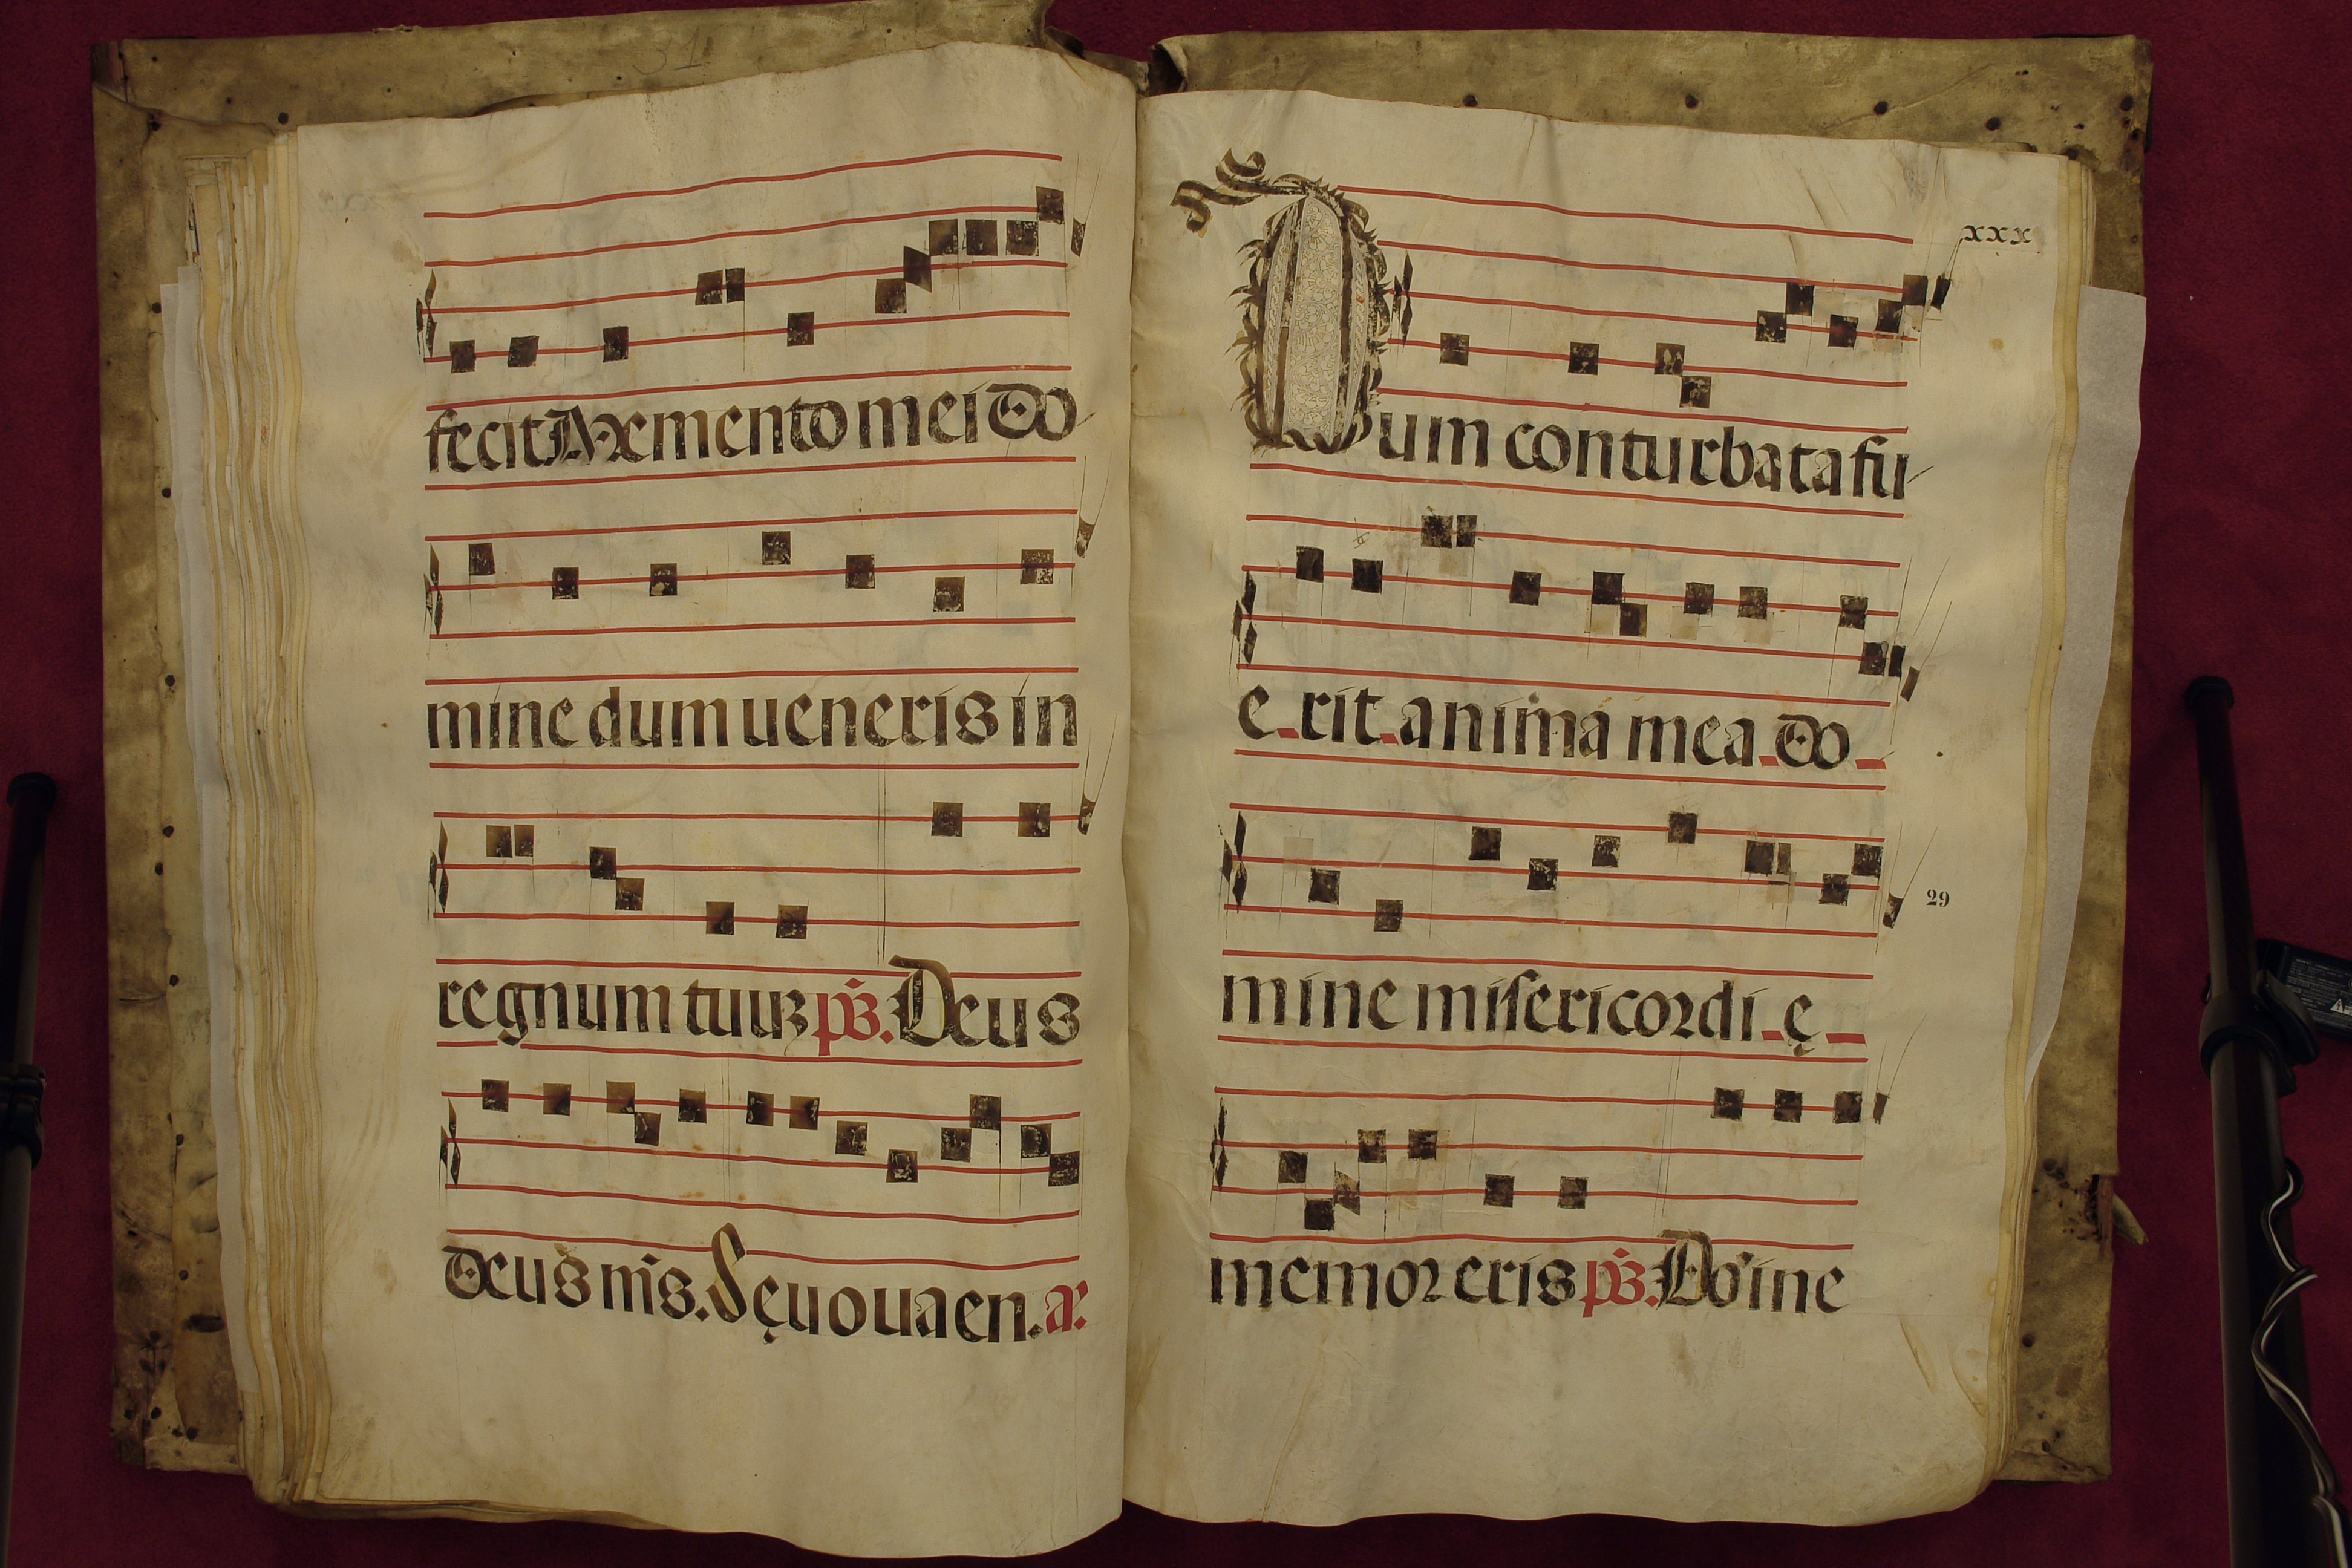 31
fecit Memento mei do
mine dum ueneris in
regnum tuuʒ ps̄. Deus
deus m̄s. Sęuouaen. a.
xxx
Cum conturbata fu
e rit anima mea do
29
mine miſericordi ę
memor eris ps̄. Do'ine